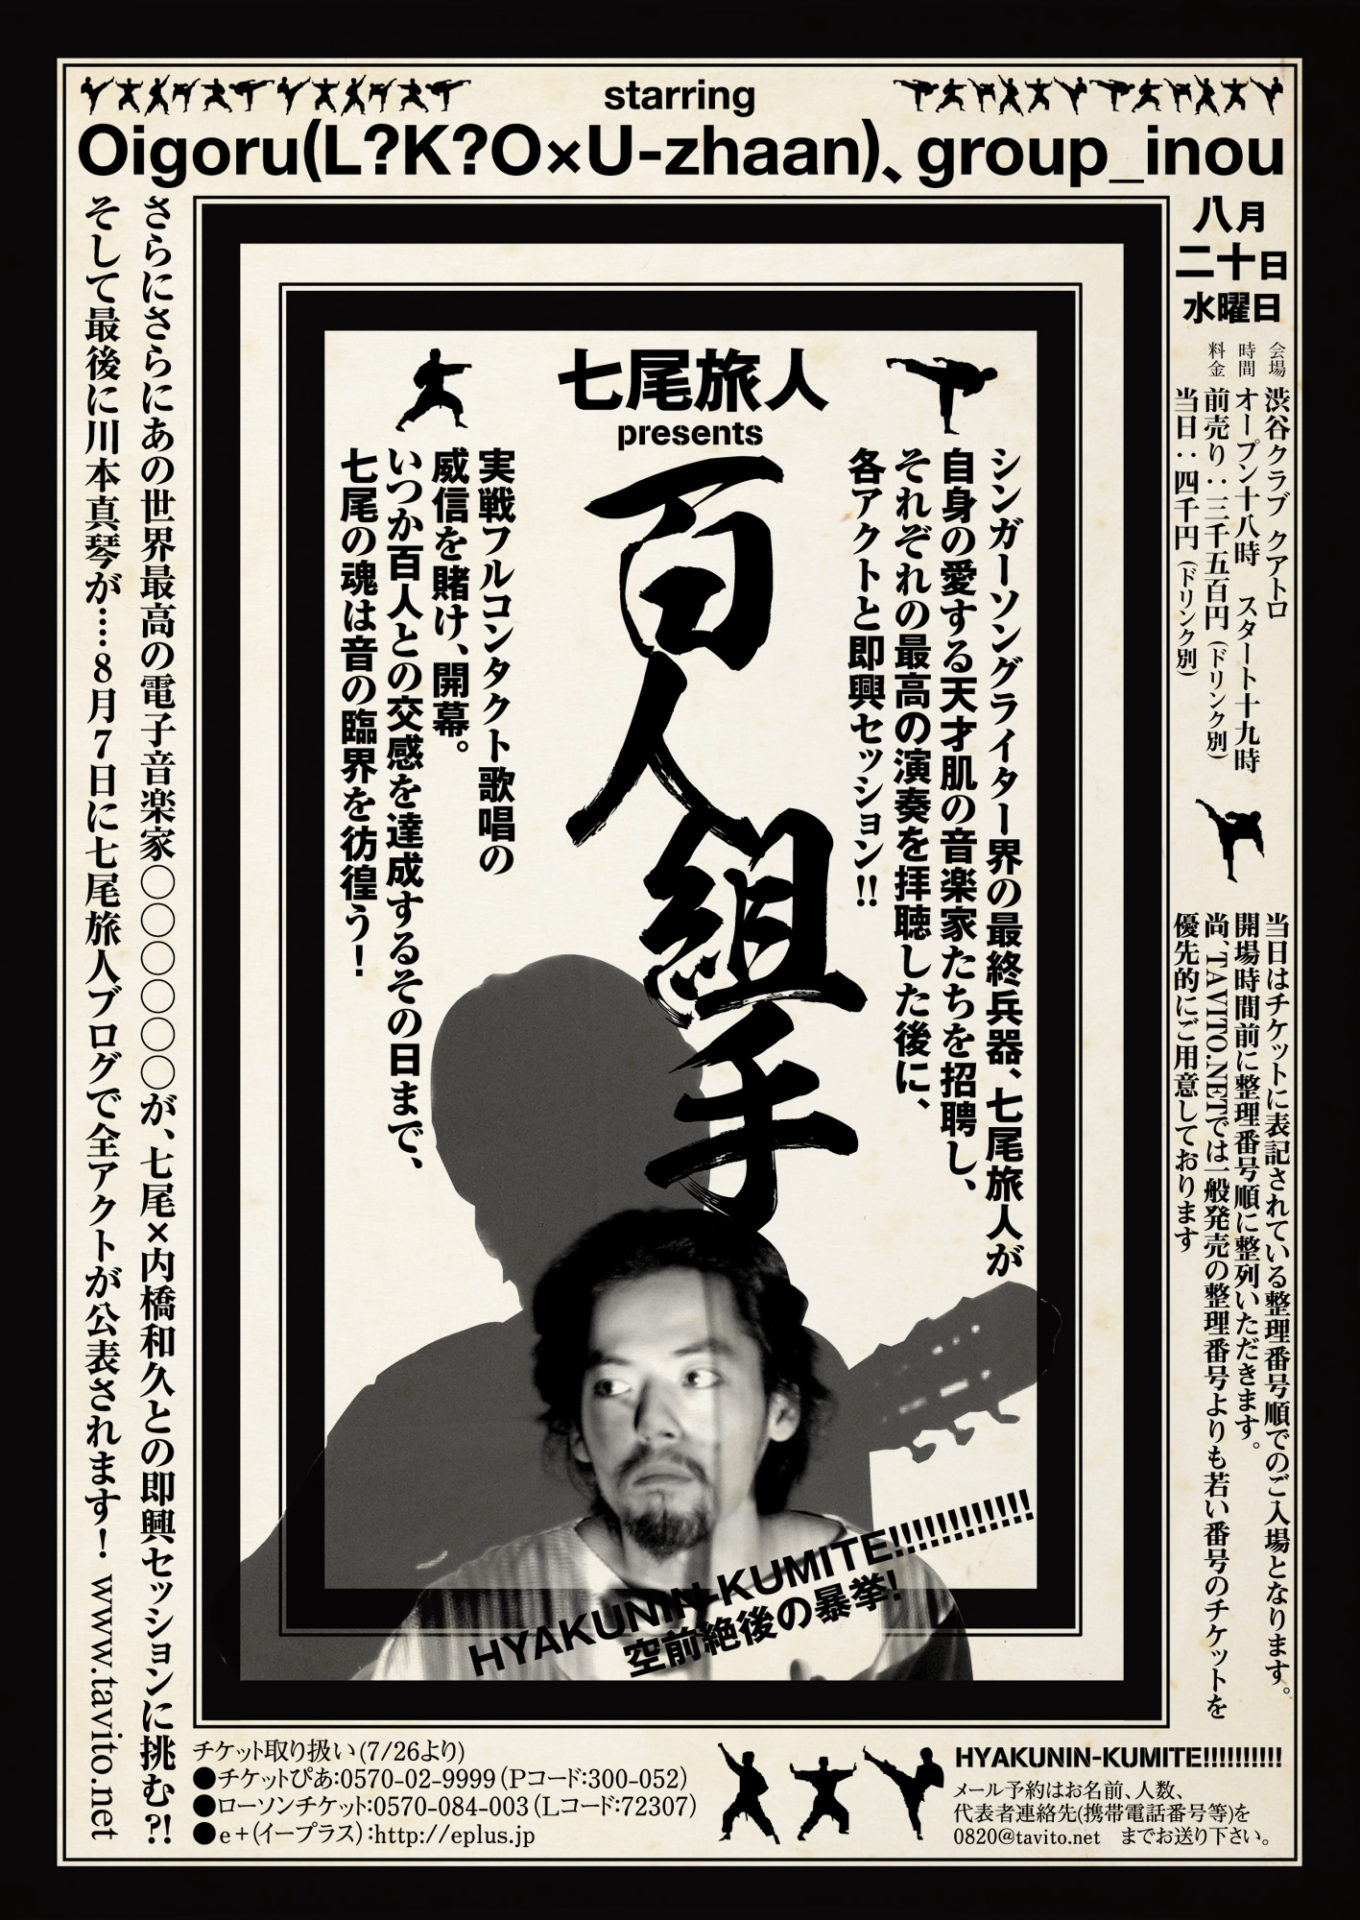 starring
Oigoru(L?K?O×U-zhaan)、group_inou
八月
二十日
水曜日
会場 渋谷クラブ クアトロ
時間 オープン十八時 スタート十九時
料金 前売り：三千五百円(ドリンク別)
当日：四千円(ドリンク別)
当日はチケットに表記されている整理番号順でのご入場となります。
開場時間前に整理番号順に整列いただきます。
尚、TAVITO.NETでは一般発売の整理番号よりも若い番号のチケットを
優先的にご用意しております
七尾旅人
presents
百人組手
シンガーソングライター界の最終兵器、七尾旅人が
自身の愛する天才肌の音楽家たちを招聘し、
それぞれの最高の演奏を拝聴した後に、
各アクトと即興セッション!!
実戦フルコンタクト歌唱の
威信を賭け、開幕。
いつか百人との交感を達成するその日まで、
七尾の魂は音の臨界を彷徨う！
HYAKUNIN-KUMITE!!!!!!!!!!!!!
空前絶後の暴挙!
さらにさらにあの世界最高の電子音楽家○○○○○○が、七尾×内橋和久との即興セッションに挑む?!
そして最後に川本真琴が‥‥8月7日に七尾旅人ブログで全アクトが公表されます！ www.tavito.net
チケット取り扱い(7/26より)
●チケットぴあ:0570-02-9999(Pコード:300-052)
●ローソンチケット:0570-084-003(Lコード:72307)
●e+(イープラス):http://eplus.jp
HYAKUNIN-KUMITE!!!!!!!!!!
メール予約はお名前、人数、
代表者連絡先(携帯電話番号等)を
0820@tavito.net までお送り下さい。